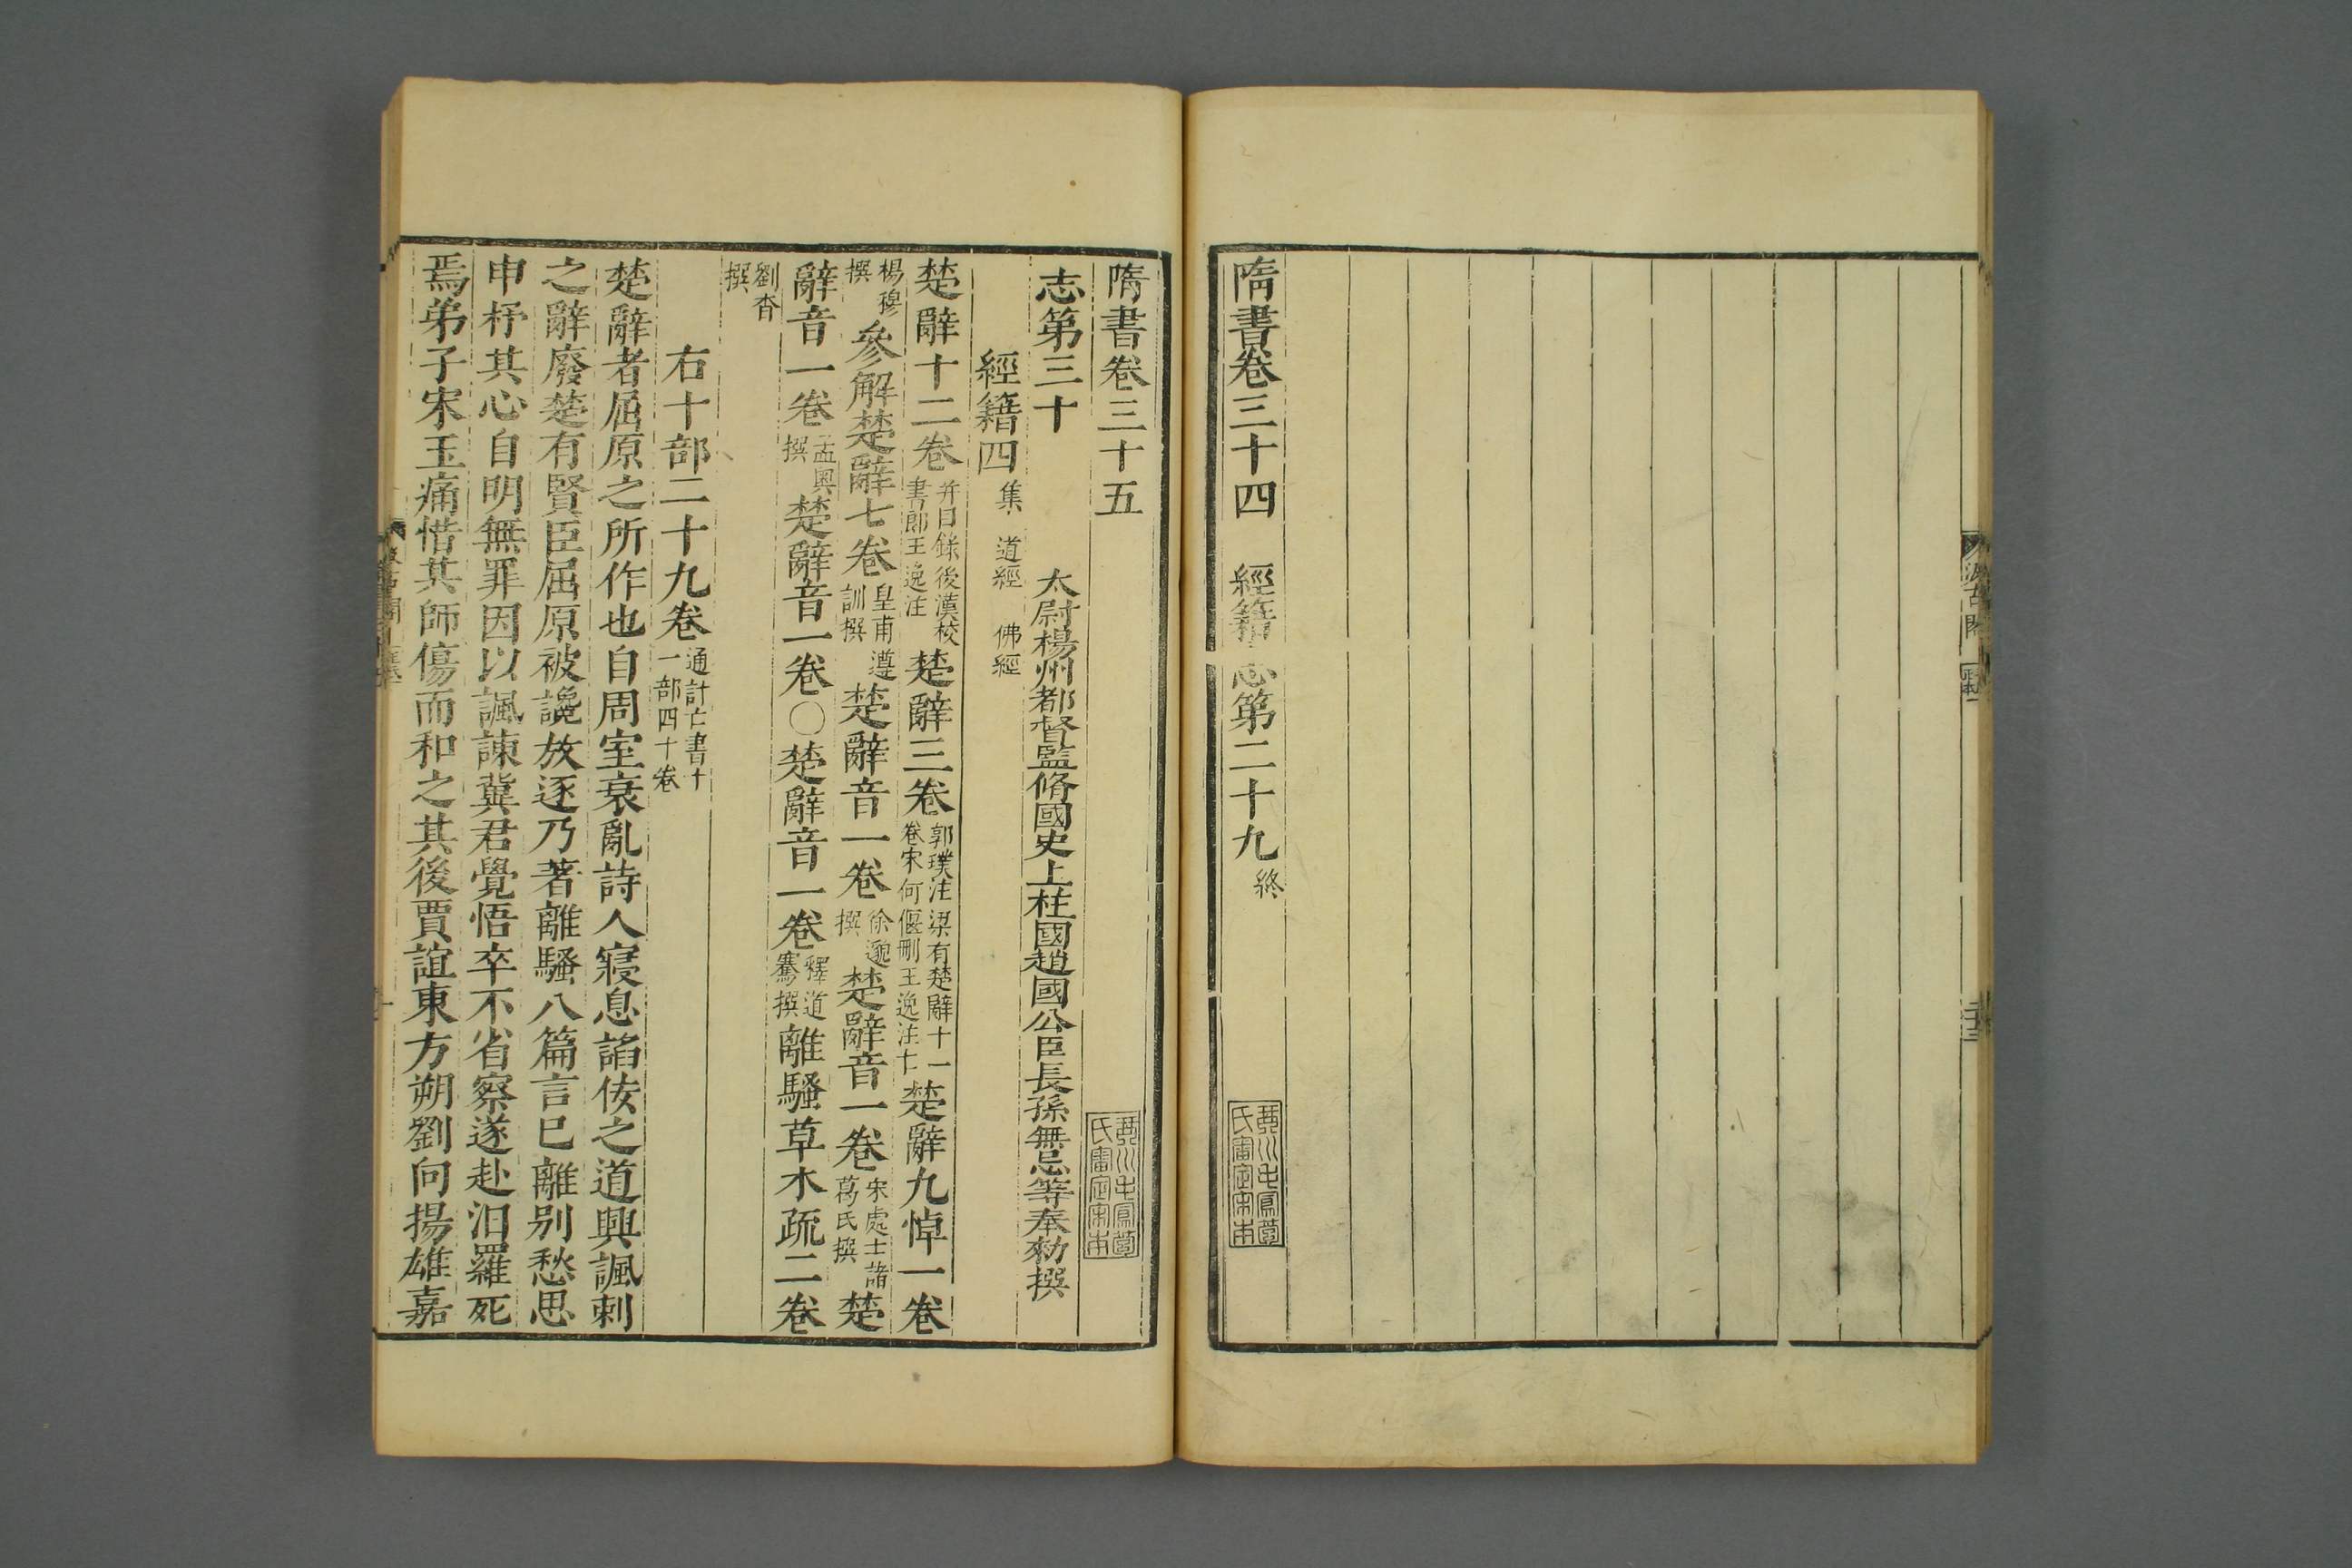 隋書卷三十四 經籍志第二十九終
隋書卷三十五
志第三十 太尉楊州都督監脩國史上柱國趙國公臣長孫無忌等奉勑撰
經籍四 集 道經 佛經
楚辭十二卷 并目錄後漢校書郎王逸注 楚辭三卷 郭璞注梁有楚辭十一卷宋何偃刪王逸注亡 楚辭九悼一卷
楊穆撰 參解楚辭七卷 皇甫遵訓撰 楚辭音一卷 徐邈撰 楚辭音一卷 宋處士諸葛氏撰 楚
辭音一卷 孟奧撰 楚辭音一卷○楚辭音一卷 釋道騫撰 離騷草木疏二卷
劉杳撰
右十部二十九卷 通計亡書十一部四十卷
楚辭者屈原之所作也自周室衰亂詩人寢息諂佞之道興諷刺
之辭廢楚有賢臣屈原被讒放逐乃著離騷八篇言已離別愁思
申杼其心自明無罪因以諷諫兾君覺悟卒不省察遂赴汨羅死
焉弟子宋玉痛惜其師傷而和之其後賈誼東方朔劉向揚雄嘉